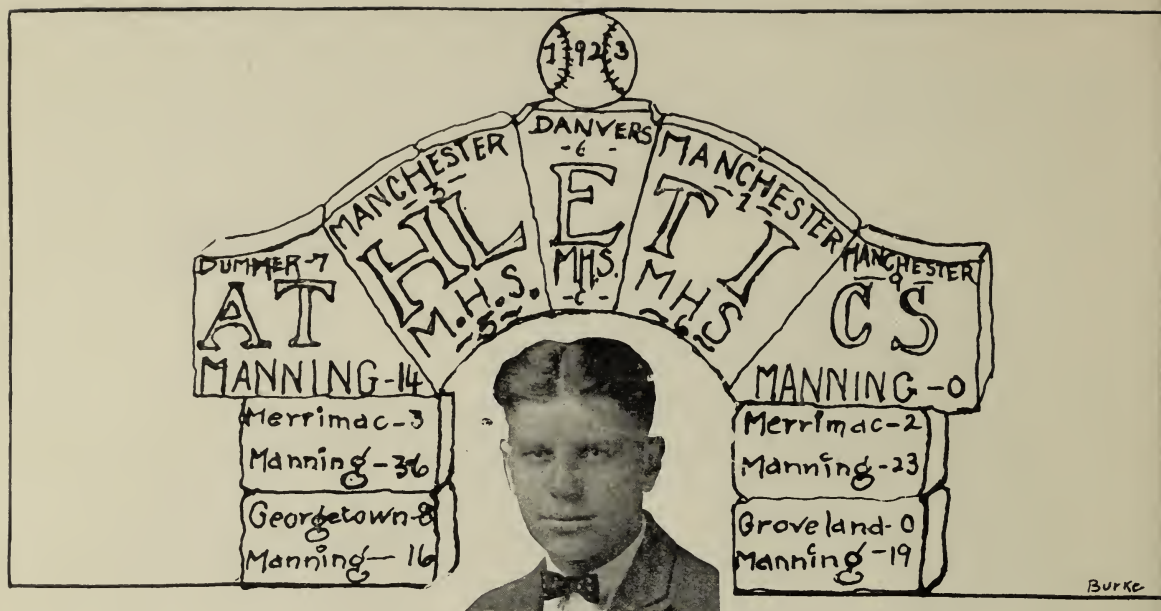 1923
DUMMER-7
AT
MANNING-14
MANCHESTER
-3-
HL
M.H.S.
-5-
DANVERS
-6-
E
M.H.S.
MANCHESTER
-1-
TI
MHS
-6-
MANCHESTER
-9-
CS
MANNING-0
Merrimac-3
Manning-36
Georgetown-8
Manning-16
Merrimac-2
Manning-23
Groveland-0
Manning-19
Burke